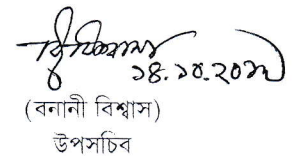 ১৪.১০.২০১৮
(বনানী বিশ্বাস)
উপসচিব